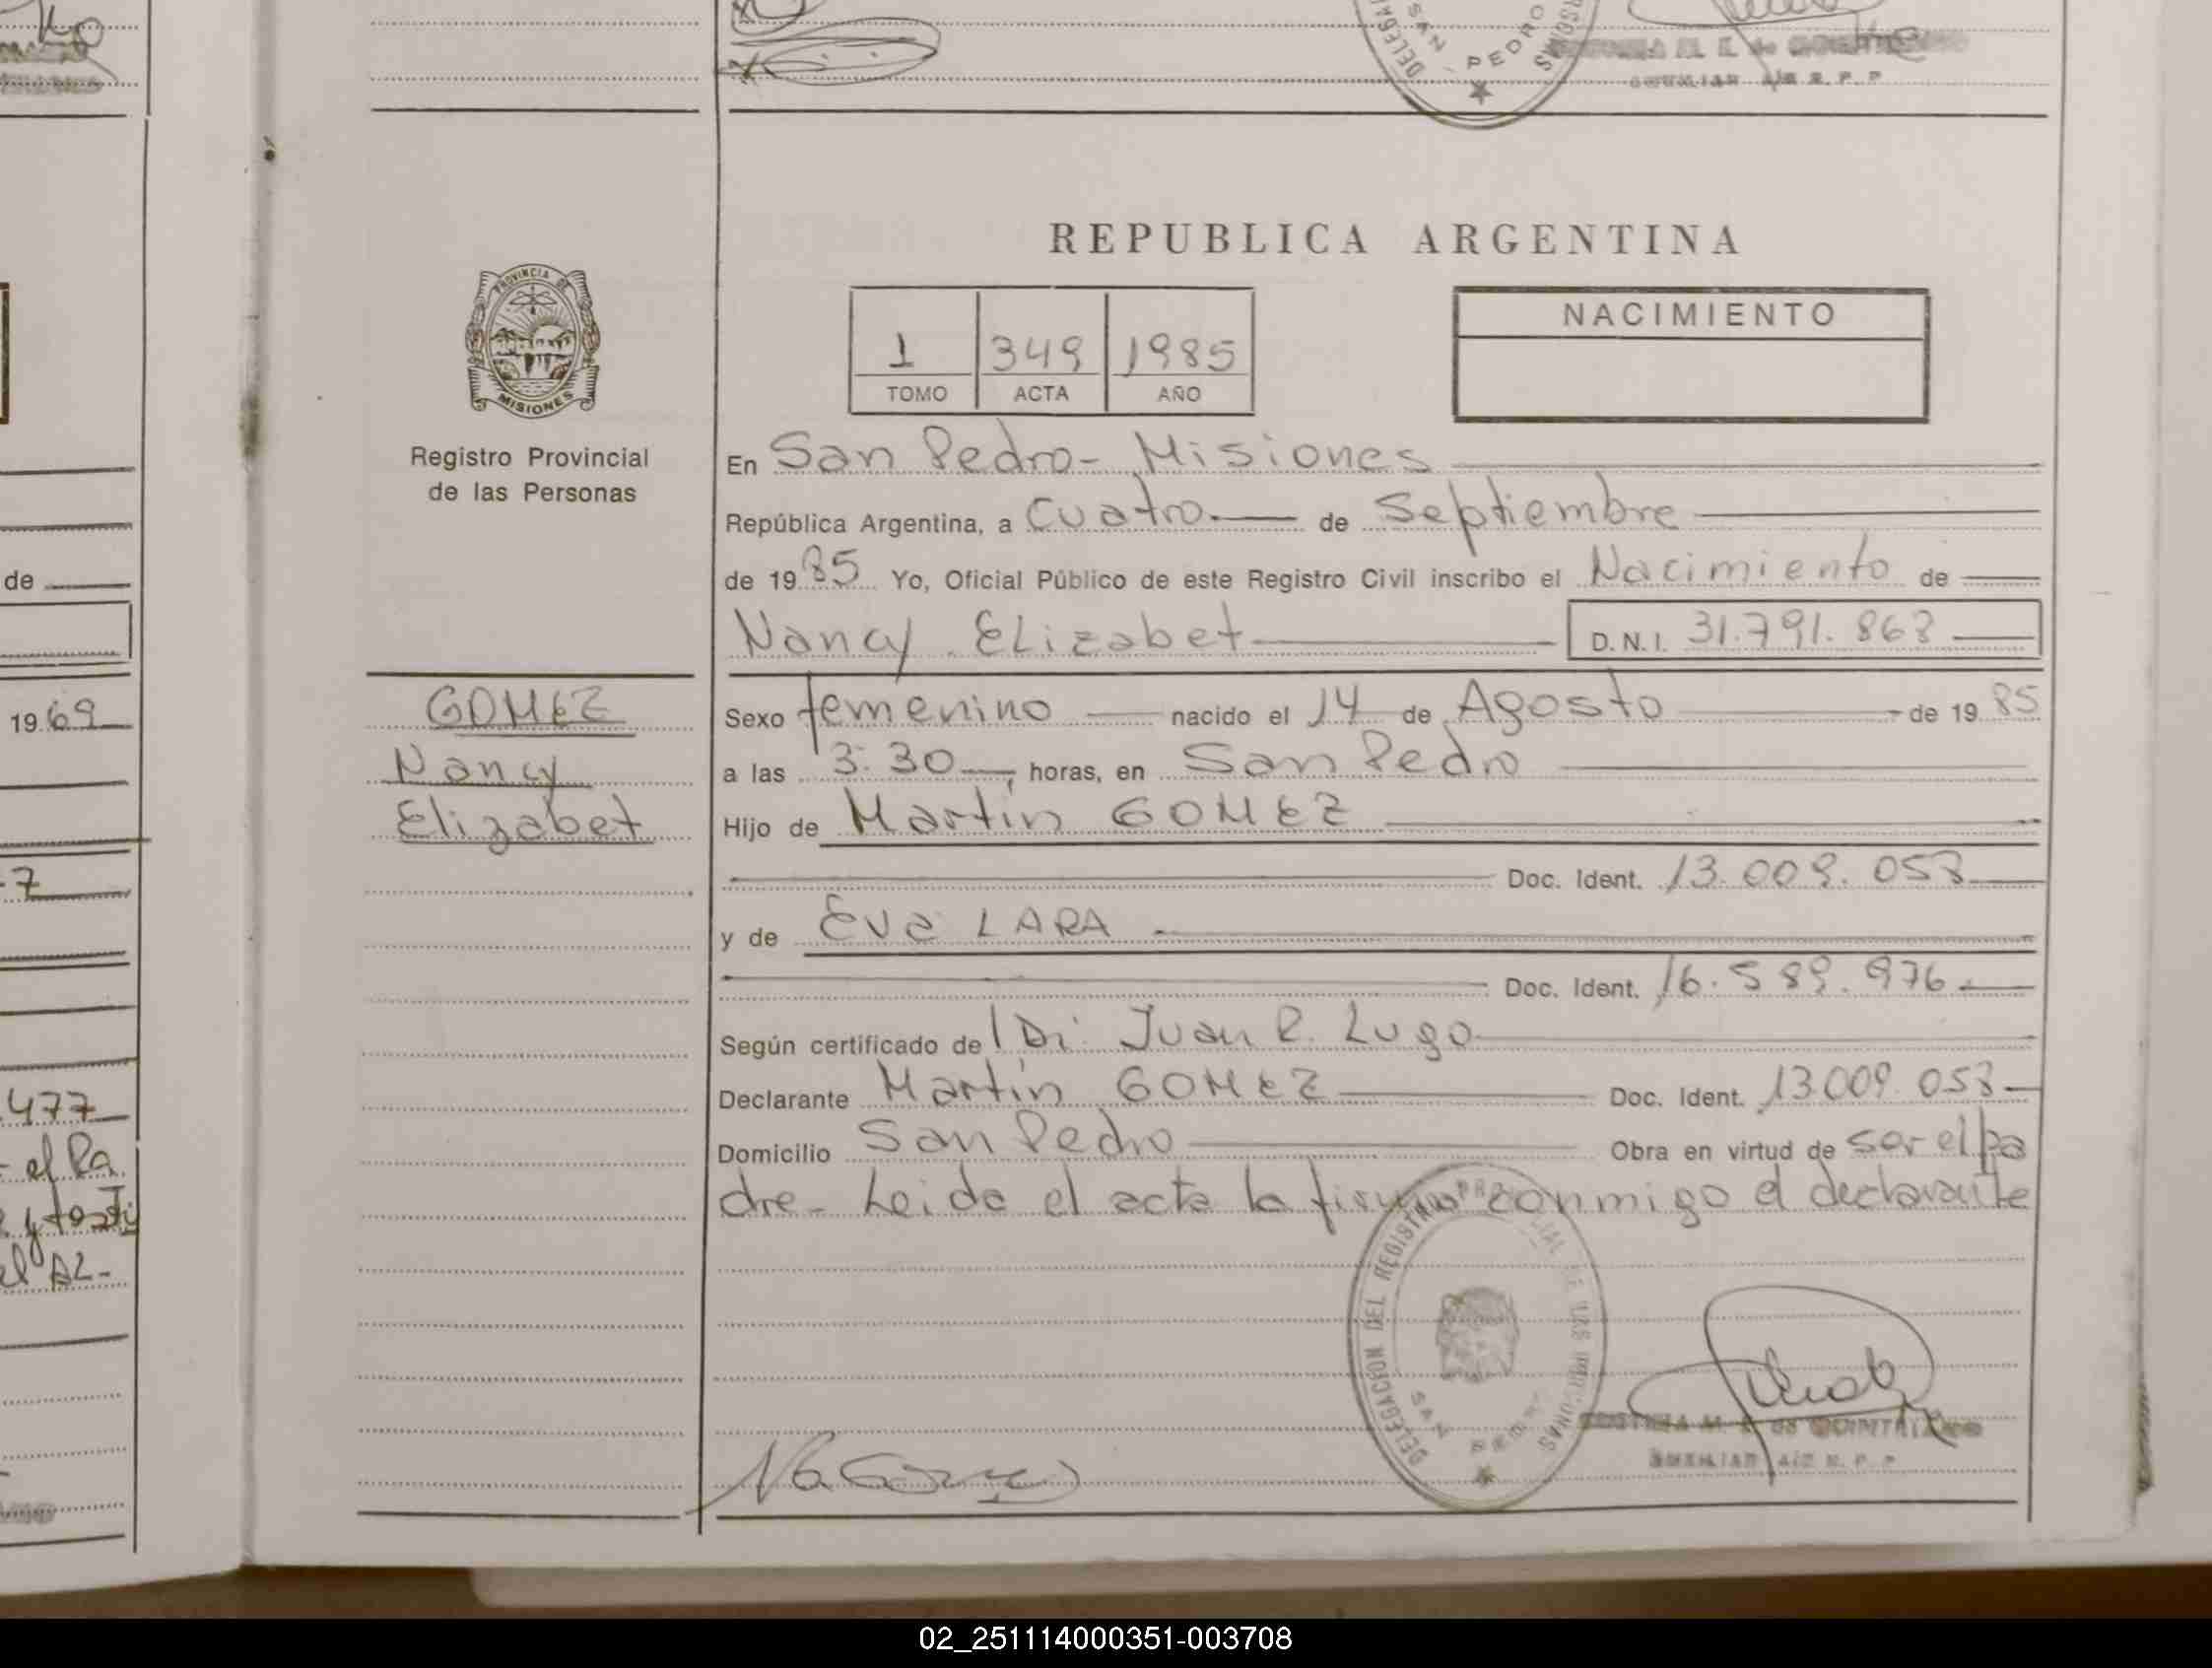 SAN PEDRO
REPUBLICA ARGENTINA
PROVINCIA DE
MISIONES
NACIMIENTO
1 349 1985
TOMO ACTA AÑO
Registro Provincial
de las Personas
En San Pedro - Misiones
República Argentina, a cuatro de Septiembre
de 1985 Yo, Oficial Público de este Registro Civil inscribo el Nacimiento de
Nancy Elizabet D.N.I. 31.791.863
GOMEZ
Nancy
Elizabet
Sexo femenino nacido el 14 de Agosto de 1985
a las 3:30 horas, en San Pedro
Hijo de Martín GOMEZ
Doc. Ident. 13.009.053
y de Eva LARA
Doc. Ident. 16.589.976
Según certificado de Juan R. Lugo
Declarante Martín GOMEZ Doc. Ident. 13.009.053
Domicilio San Pedro Obra en virtud de ser el pa
dre - Leida el acta la firma conmigo el declarante
DELEGACION DEL REGISTRO PROVINCIAL DE LAS PERSONAS
SAN PEDRO
de
1969
7
477
el Pa
02_251114000351-003708